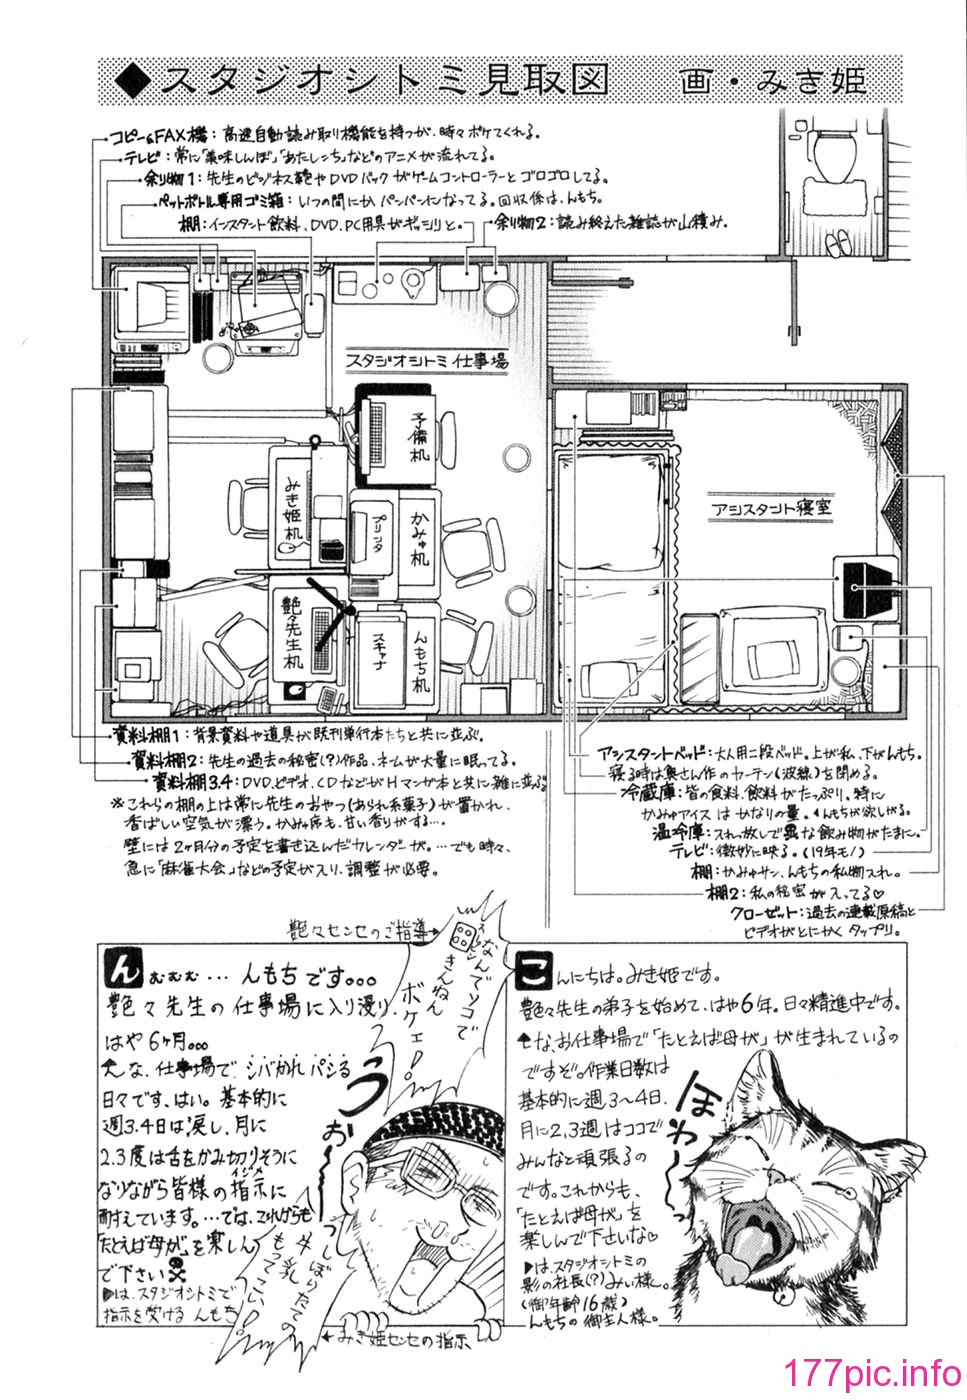 ◆スタジオシトミ見取図　画・みき姫
コピー&FAX機：高速自動読み取り機能を持つが、時々ボケてくれる。
テレビ：常に「美味しんぼ」「あたしンち」などのアニメが流れてる。
余り物1：先生のビジネス鞄やDVDパックがゲームコントローラーとゴロゴロしてる。
ペットボトル専用ゴミ箱：いつの間にかパンパンになってる。回収係は、んもち。
棚：インスタント飲料、DVD、PC用具がギッシリと。
余り物2：読み終えた雑誌が山積み。
スタジオシトミ仕事場
予備机
みき姫机
プリンタ
かみゅ机
艶々先生机
スキャナ
んもち机
アシスタント寝室
資料棚1：背景資料や道具が既刊単行本たちと共に並ぶ。
資料棚2：先生の過去の秘密(?)作品、ネームが大量に眠ってる。
資料棚3.4：DVD、ビデオ、CDなどがHマンガ本と共に雑に並ぶ
※これらの棚の上は常に先生のおやつ(あられ系菓子)が置かれ、
香ばしい空気が漂う。かみゅ席も、甘い香りがする…。
壁には2ヶ月分の予定を書き込んだカレンダーが。…でも時々、
急に「麻雀大会」などの予定が入り、調整が必要。
アシスタントベッド：大人用二段ベッド。上が私、下がんもち。
寝る時は奥さん作のカーテン(波線)を閉める。
冷蔵庫：皆の食料、飲料がたっぷり。特に
かみゅアイスはかなりの量。んもちが欲しがる。
温冷庫：入れっ放しで異な飲み物がたまに。
テレビ：微妙に映る。(19年モノ)
棚：かみゅサン、んもちの私物入れ。
棚2：私の秘密が入ってる♡
クローゼット：過去の連載原稿と
ビデオがとにかくタップリ。
艶々センセのご指導→
なんでソコで
きんねん
ボケェ!
んむむむ…んもちです。。。
艶々先生の仕事場に入り浸り、
はや6ヶ月。。。
そんな、仕事場でシバかれパシる
日々です、はい。基本的に
週3.4日は涙し、月に
2.3度は舌をかみ切りそうに
なりながら皆様の指示に
イジメ
耐えています。…では、これからも
「たとえば母が」を楽しん
で下さい☠
▶は、スタジオシトミで
指示を受けるんもち
うおー
しぼりたての
母乳
もってこい!
←みき姫センセの指示
こんにちは。みき姫です。
艶々先生の弟子を始めて、はや6年。日々精進中です。
そんな、お仕事場で「たとえば母が」が生まれているの
ですぞ。作業日数は
基本的に週3～4日、
月に2,3週はココで
みんなと頑張るの
です。これからも、
「たとえば母が」を
楽しんで下さいな♡
▶は、スタジオシトミの
影の社長(?)みぃ様。
(御年齢16歳)
んもちの御主人様。
ほわ～
177pic.info